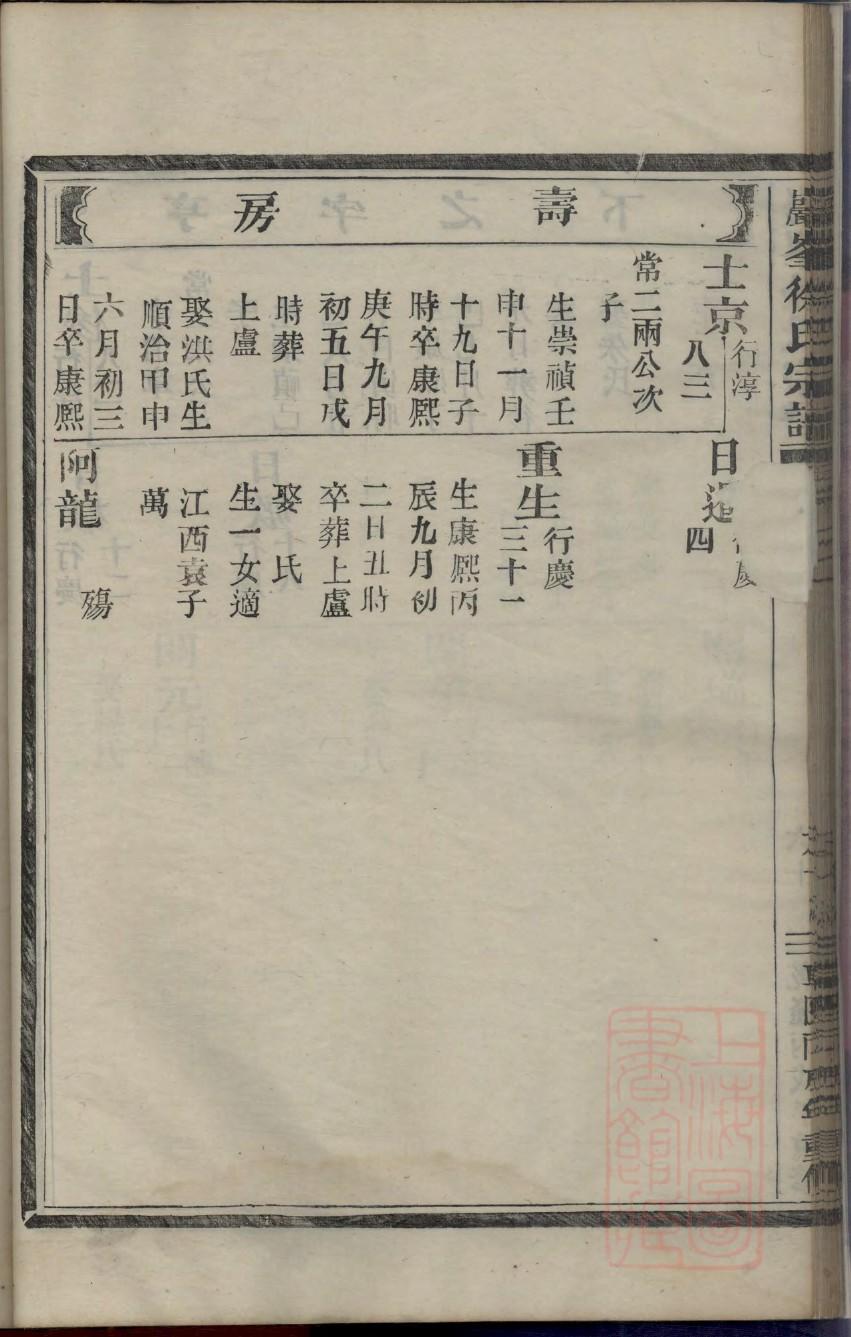 壽房
士京
行淳
八三
常二兩公次
子
生崇禎壬
申十一月
十九日子
時卒康熙
庚午九月
初五日戌
時葬
上盧
娶洪氏生
順治甲申
六月初三
日卒康熙
日
四
重生
行慶
三十一
生康熙丙
辰九月初
二日丑時
卒葬上盧
娶 氏
生一女適
江西袁子
萬
阿龍
殤
峯徐氏宗譜
重修
上海圖
書館藏